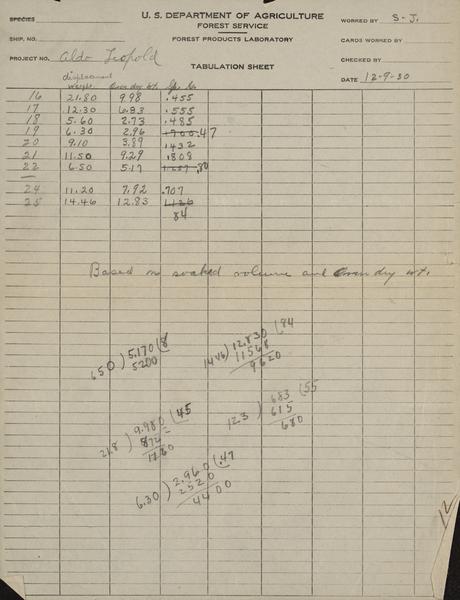 U. S. DEPARTMENT OF AGRICULTURE
FOREST SERVICE
FOREST PRODUCTS LABORATORY
TABULATION SHEET
SPECIES
SHIP. NO.
PROJECT NO. Aldo Leopold
WORKED BY S-J.
CARDS WORKED BY
CHECKED BY
DATE 12-9-30
displacement
weight. Oven dry wt. Sp. Gr.
16 21.80 9.98 .455
17 12.30 6.83 .555
18 5.60 2.73 .485
19 6.30 2.96 .47
20 9.10 3.89 .432
21 11.50 9.29 .808
22 6.50 5.17 .80
24 11.20 7.92 .707
25 14.46 12.83 1.126
84
Based on soaked volume and Oven dry wt.
650 ) 5.170 (8
5200
1446 ) 12.830 (84
11568
9620
12.3 ) 683 (55
615
680
21.8 ) 9.980 (45
872
1260
6.30 ) 2.960 (.47
2520
4400
12